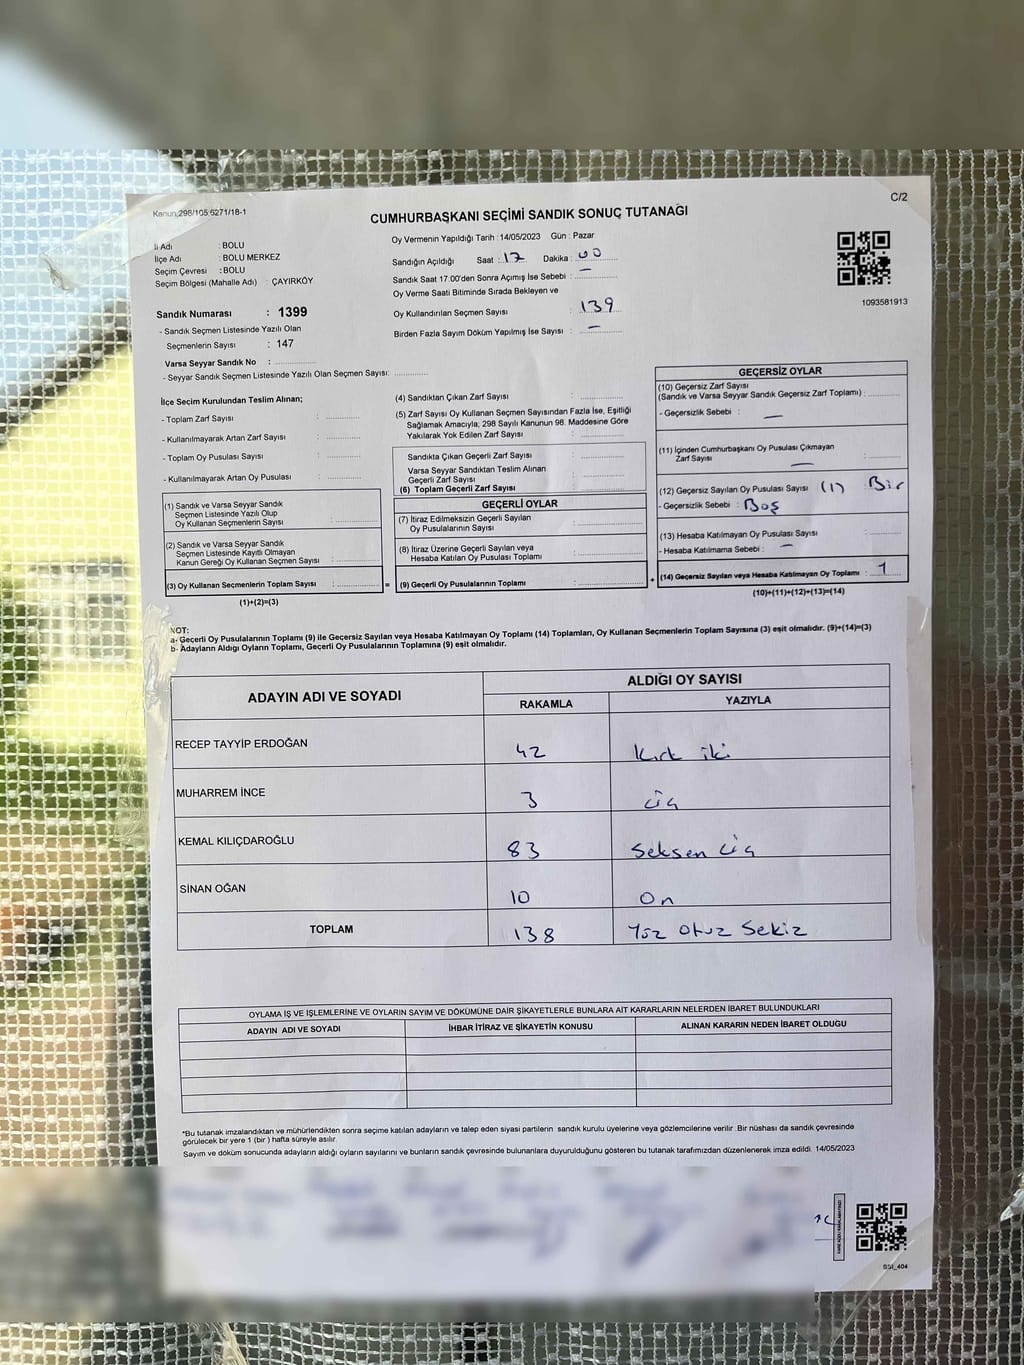 Kanun:298/105:6271/18-1
C/2
CUMHURBAŞKANI SEÇİMİ SANDIK SONUÇ TUTANAĞI
İl Adı : BOLU
İlçe Adı : BOLU MERKEZ
Seçim Çevresi : BOLU
Seçim Bölgesi (Mahalle Adı) : ÇAYIRKÖY
Sandık Numarası : 1399
- Sandık Seçmen Listesinde Yazılı Olan
Seçmenlerin Sayısı : 147
Varsa Seyyar Sandık No : ............
- Seyyar Sandık Seçmen Listesinde Yazılı Olan Seçmen Sayısı: ............
Oy Vermenin Yapıldığı Tarih : 14/05/2023 Gün : Pazar
Sandığın Açıldığı Saat : 17 Dakika : 00
Sandık Saat 17:00'den Sonra Açımış İse Sebebi : —
Oy Verme Saati Bitiminde Sırada Bekleyen ve
Oy Kullandırılan Seçmen Sayısı : 139
Birden Fazla Sayım Döküm Yapılmış İse Sayısı : —
1093581913
İlçe Seçim Kurulundan Teslim Alınan;
- Toplam Zarf Sayısı : ............
- Kullanılmayarak Artan Zarf Sayısı : ............
- Toplam Oy Pusulası Sayısı : ............
- Kullanılmayarak Artan Oy Pusulası : ............
(1) Sandık ve Varsa Seyyar Sandık
Seçmen Listesinde Yazılı Olup
Oy Kullanan Seçmenlerin Sayısı : ............
(2) Sandık ve Varsa Seyyar Sandık
Seçmen Listesinde Kayıtlı Olmayan
Kanun Gereği Oy Kullanan Seçmen Sayısı : ............
(3) Oy Kullanan Seçmenlerin Toplam Sayısı : ............ =
(1)+(2)=(3)
(4) Sandıktan Çıkan Zarf Sayısı : ............
(5) Zarf Sayısı Oy Kullanan Seçmen Sayısından Fazla İse, Eşitliği
Sağlamak Amacıyla; 298 Sayılı Kanunun 98. Maddesine Göre
Yakılarak Yok Edilen Zarf Sayısı : ............
Sandıkta Çıkan Geçerli Zarf Sayısı : ............
Varsa Seyyar Sandıktan Teslim Alınan
Geçerli Zarf Sayısı : ............
(6) Toplam Geçerli Zarf Sayısı : ............
GEÇERLİ OYLAR
(7) İtiraz Edilmeksizin Geçerli Sayılan
Oy Pusulalarının Sayısı : ............
(8) İtiraz Üzerine Geçerli Sayılan veya
Hesaba Katılan Oy Pusulası Toplamı : ............
(9) Geçerli Oy Pusulalarının Toplamı : ............ +
GEÇERSİZ OYLAR
(10) Geçersiz Zarf Sayısı
(Sandık ve Varsa Seyyar Sandık Geçersiz Zarf Toplamı) : ............
- Geçersizlik Sebebi : —
(11) İçinden Cumhurbaşkanı Oy Pusulası Çıkmayan
Zarf Sayısı : —
(12) Geçersiz Sayılan Oy Pusulası Sayısı (1) : Bir
- Geçersizlik Sebebi : Boş
(13) Hesaba Katılmayan Oy Pusulası Sayısı : ............
- Hesaba Katılmama Sebebi : —
(14) Geçersiz Sayılan veya Hesaba Katılmayan Oy Toplamı : 1
(10)+(11)+(12)+(13)=(14)
NOT:
a- Geçerli Oy Pusulalarının Toplamı (9) ile Geçersiz Sayılan veya Hesaba Katılmayan Oy Toplamı (14) Toplamları, Oy Kullanan Seçmenlerin Toplam Sayısına (3) eşit olmalıdır. (9)+(14)=(3)
b- Adayların Aldığı Oyların Toplamı, Geçerli Oy Pusulalarının Toplamına (9) eşit olmalıdır.
ADAYIN ADI VE SOYADI
ALDIĞI OY SAYISI
RAKAMLA YAZIYLA
RECEP TAYYİP ERDOĞAN 42 Kırk iki
MUHARREM İNCE 3 üç
KEMAL KILIÇDAROĞLU 83 Seksen üç
SİNAN OĞAN 10 On
TOPLAM 138 Yüz Otuz Sekiz
OYLAMA İŞ VE İŞLEMLERİNE VE OYLARIN SAYIM VE DÖKÜMÜNE DAİR ŞİKAYETLERLE BUNLARA AİT KARARLARIN NELERDEN İBARET BULUNDUKLARI
ADAYIN ADI VE SOYADI İHBAR İTİRAZ VE ŞİKAYETİN KONUSU ALINAN KARARIN NEDEN İBARET OLDUĞU
*Bu tutanak imzalandıktan ve mühürlendikten sonra seçime katılan adayların ve talep eden siyasi partilerin sandık kurulu üyelerine veya gözlemcilerine verilir .Bir nüshası da sandık çevresinde
görülecek bir yere 1 (bir ) hafta süreyle asılır.
Sayım ve döküm sonucunda adayların aldığı oyların sayılarını ve bunların sandık çevresinde bulunanlara duyurulduğunu gösteren bu tutanak tarafımızdan düzenlenerek imza edildi. 14/05/2023
SSI_404